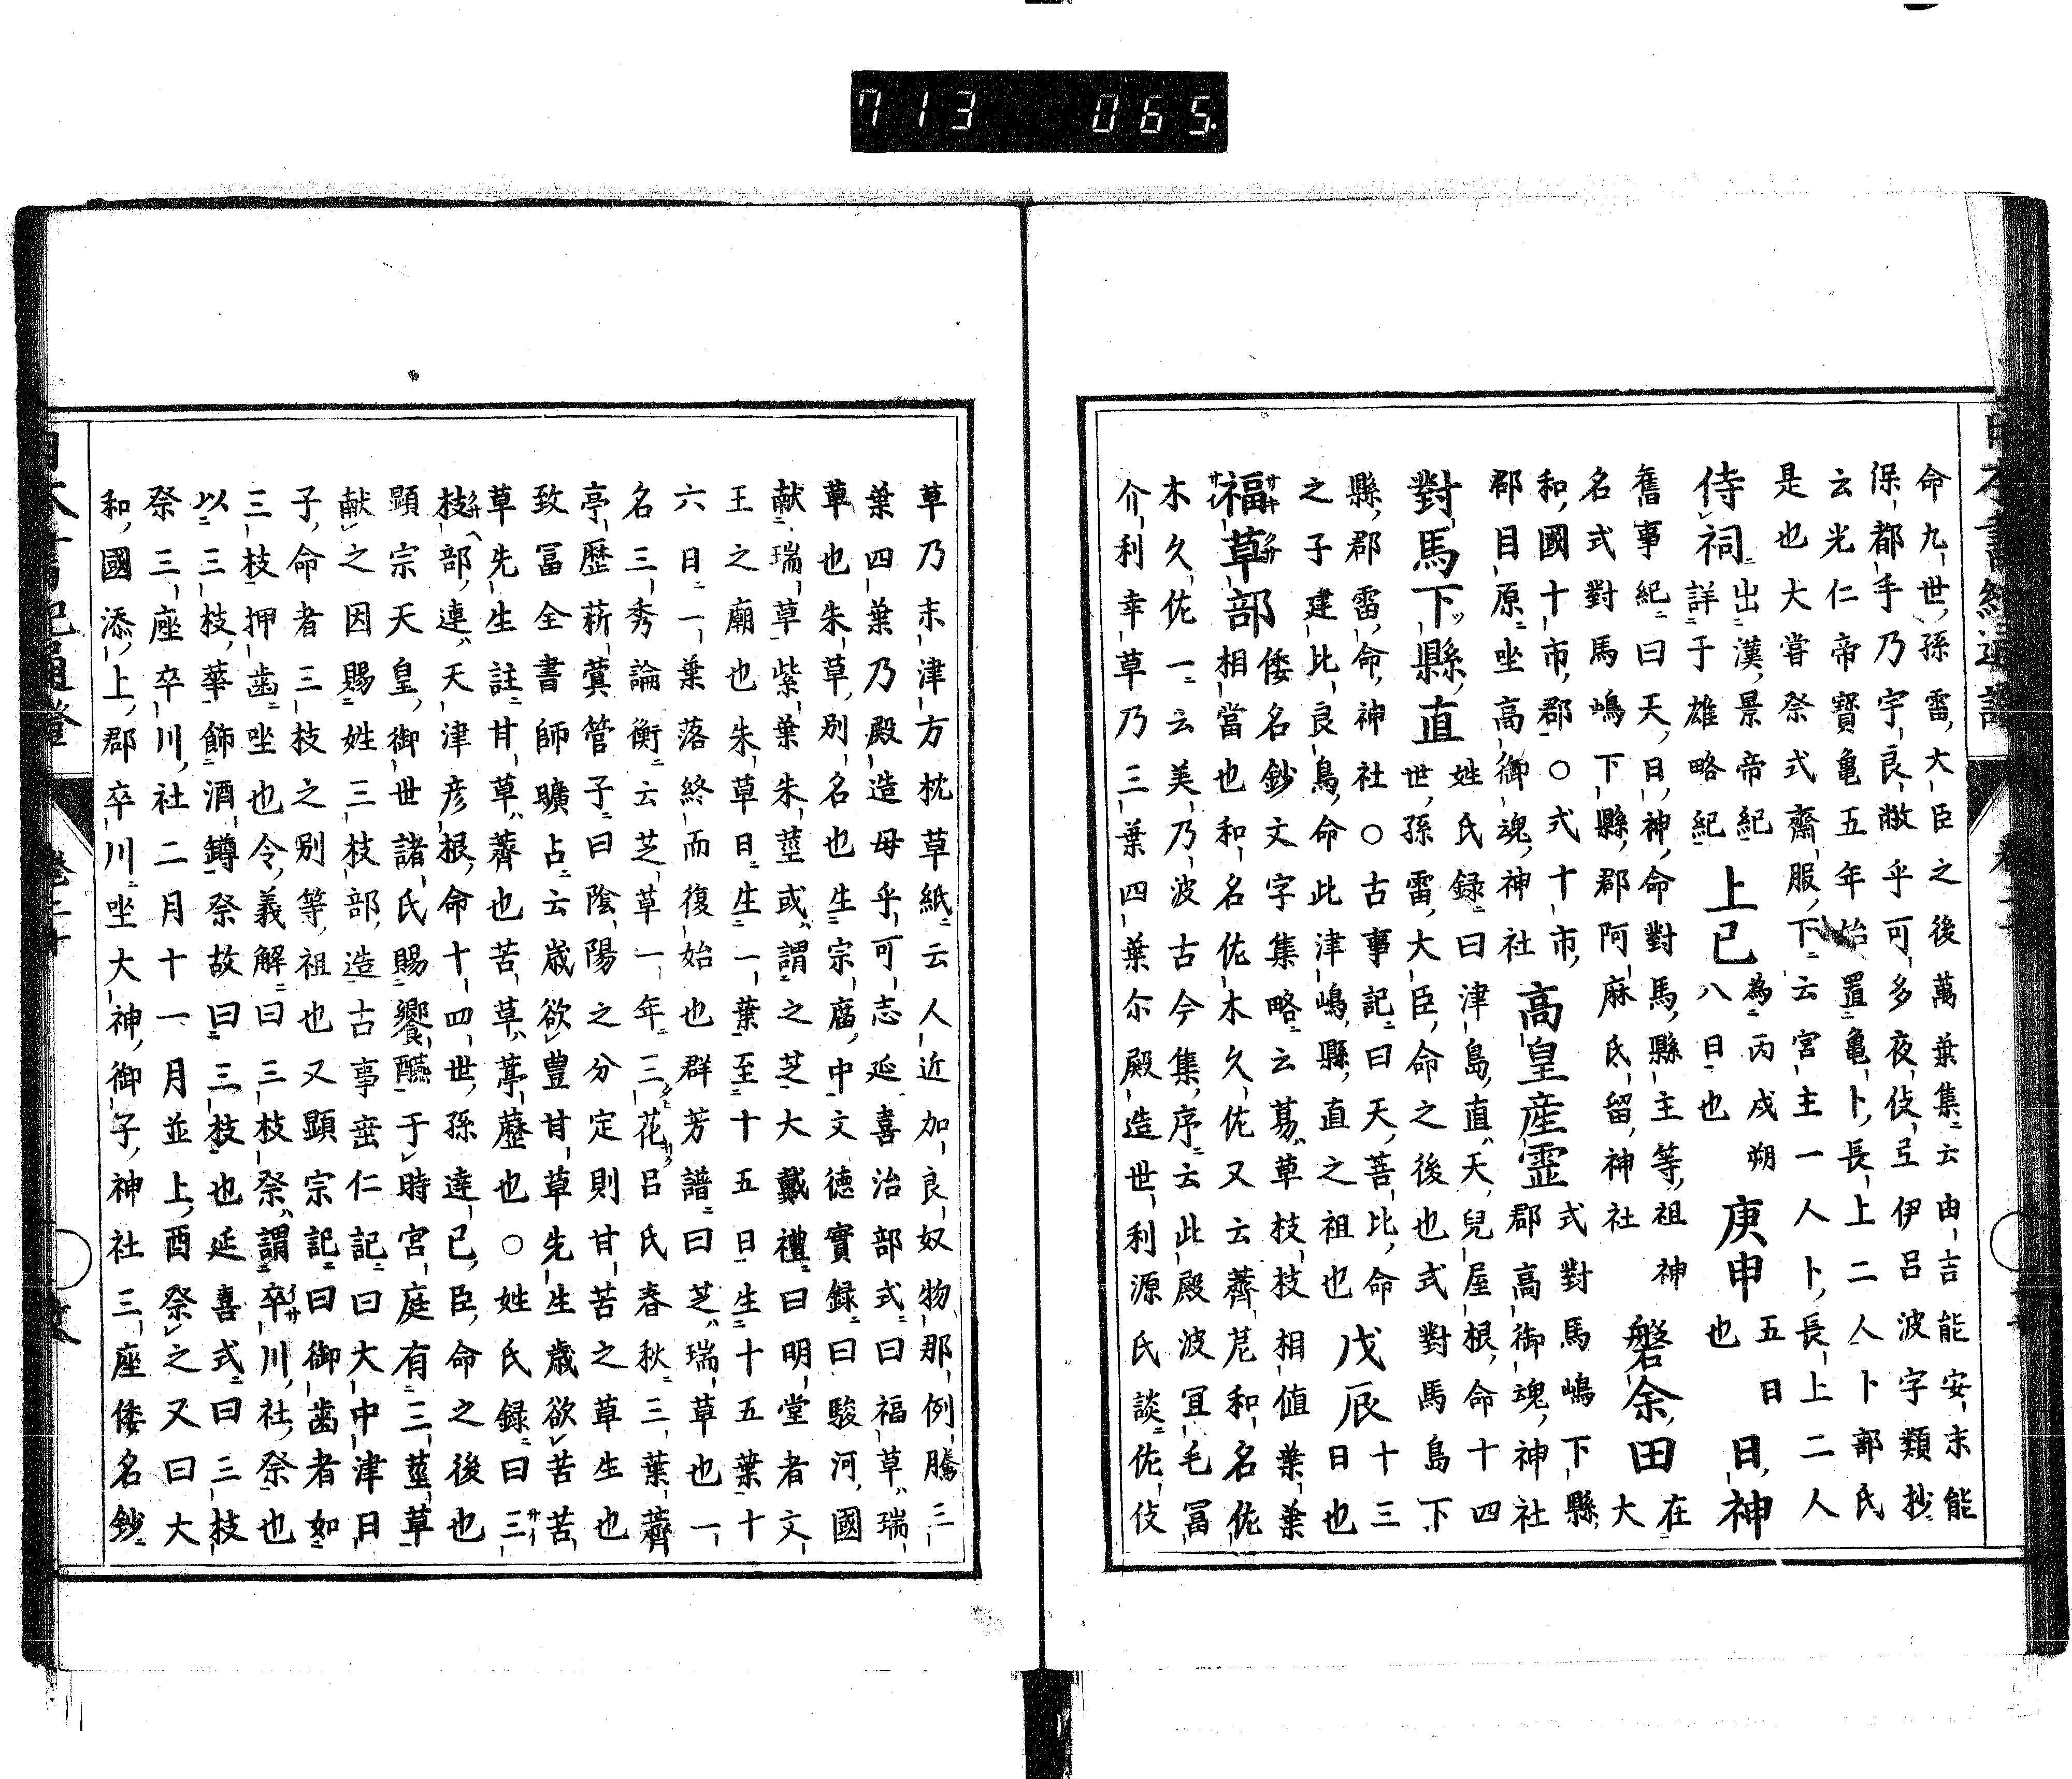 713 065
命九世孫雷大臣之後萬葉集云由吉能安末能
保都手乃宇良敝乎可多夜伎弖伊呂波字類抄
云光仁帝寶亀五年始置亀卜長上二人卜部氏
是也大甞祭式齋服下云宮主一人卜長上二人
侍祠出漢景帝紀詳于雄略紀上巳為丙戌朔八日也庚申五日也日神
舊事紀曰天日神命對馬縣主等祖神磐余田在大
名式對馬嶋下縣郡阿麻氐留神社
和國十市郡○式十市郡目原坐高御魂神社高皇産霊式對馬嶋下縣郡高御魂神社
對馬下縣直姓氏録曰津島直天兒屋根命十四世孫雷大臣命之後也式對馬島下
縣郡雷命神社○古事記曰天菩比命
之子建比良鳥命此津嶋縣直之祖也戊辰十三日也
福草部倭名鈔文字集略云葛草枝枝相値葉葉相當也和名佐木久佐又云薺苨和名佐
木久佐一云美乃波古今集序云此殿波冝毛冨
介利幸草乃三葉四葉尓殿造世利源氏談佐伎
草乃末津方枕草紙云人近加良奴物那例騰三
葉四葉乃殿造母乎可志延喜治部式曰福草瑞
草也朱草別名也生宗廟中文徳實録曰駿河國
献瑞草紫葉朱莖或謂之芝大戴禮曰明堂者文
王之廟也朱草日生一葉至十五日生十五葉十
六日一葉落終而復始也群芳譜曰芝瑞草也一
名三秀論衡云芝草一年三花呂氏春秋三葉薺
亭歷薪蓂管子曰陰陽之分定則甘苦之草生也
致冨全書師曠占云歳欲豊甘草先生歳欲苦苦
草先生註甘草薺也苦草葶藶也○姓氏録曰三
枝部連天津彦根命十四世孫達已臣命之後也
顕宗天皇御世諸氏賜饗醼于時宮庭有三莖草
献之因賜姓三枝部造古事垂仁記曰大中津日
子命者三枝之別等祖也又顕宗記曰御歯者如
三枝押歯坐也令義解曰三枝祭謂卒川社祭也
以三枝華飾酒鐏祭故曰三枝也延喜式曰三枝
祭三座卒川社二月十一月並上酉祭之又曰大
和國添上郡卒川坐大神御子神社三座倭名鈔